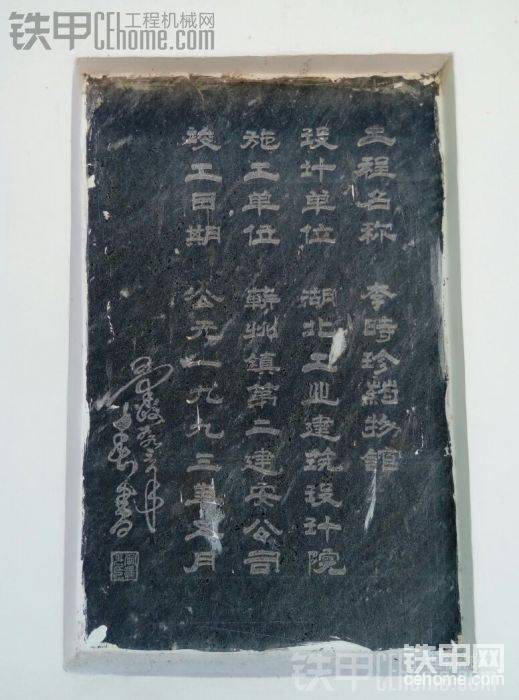 铁甲工程机械网
CEhome.com
工程名称 李時珍药物館
设计单位 湖北工业建筑设计院
施工单位 蕲州镇第二建安公司
竣工日期 公元一九九三年 月
书
铁甲网
CEhome.com
铁甲CEhome.com